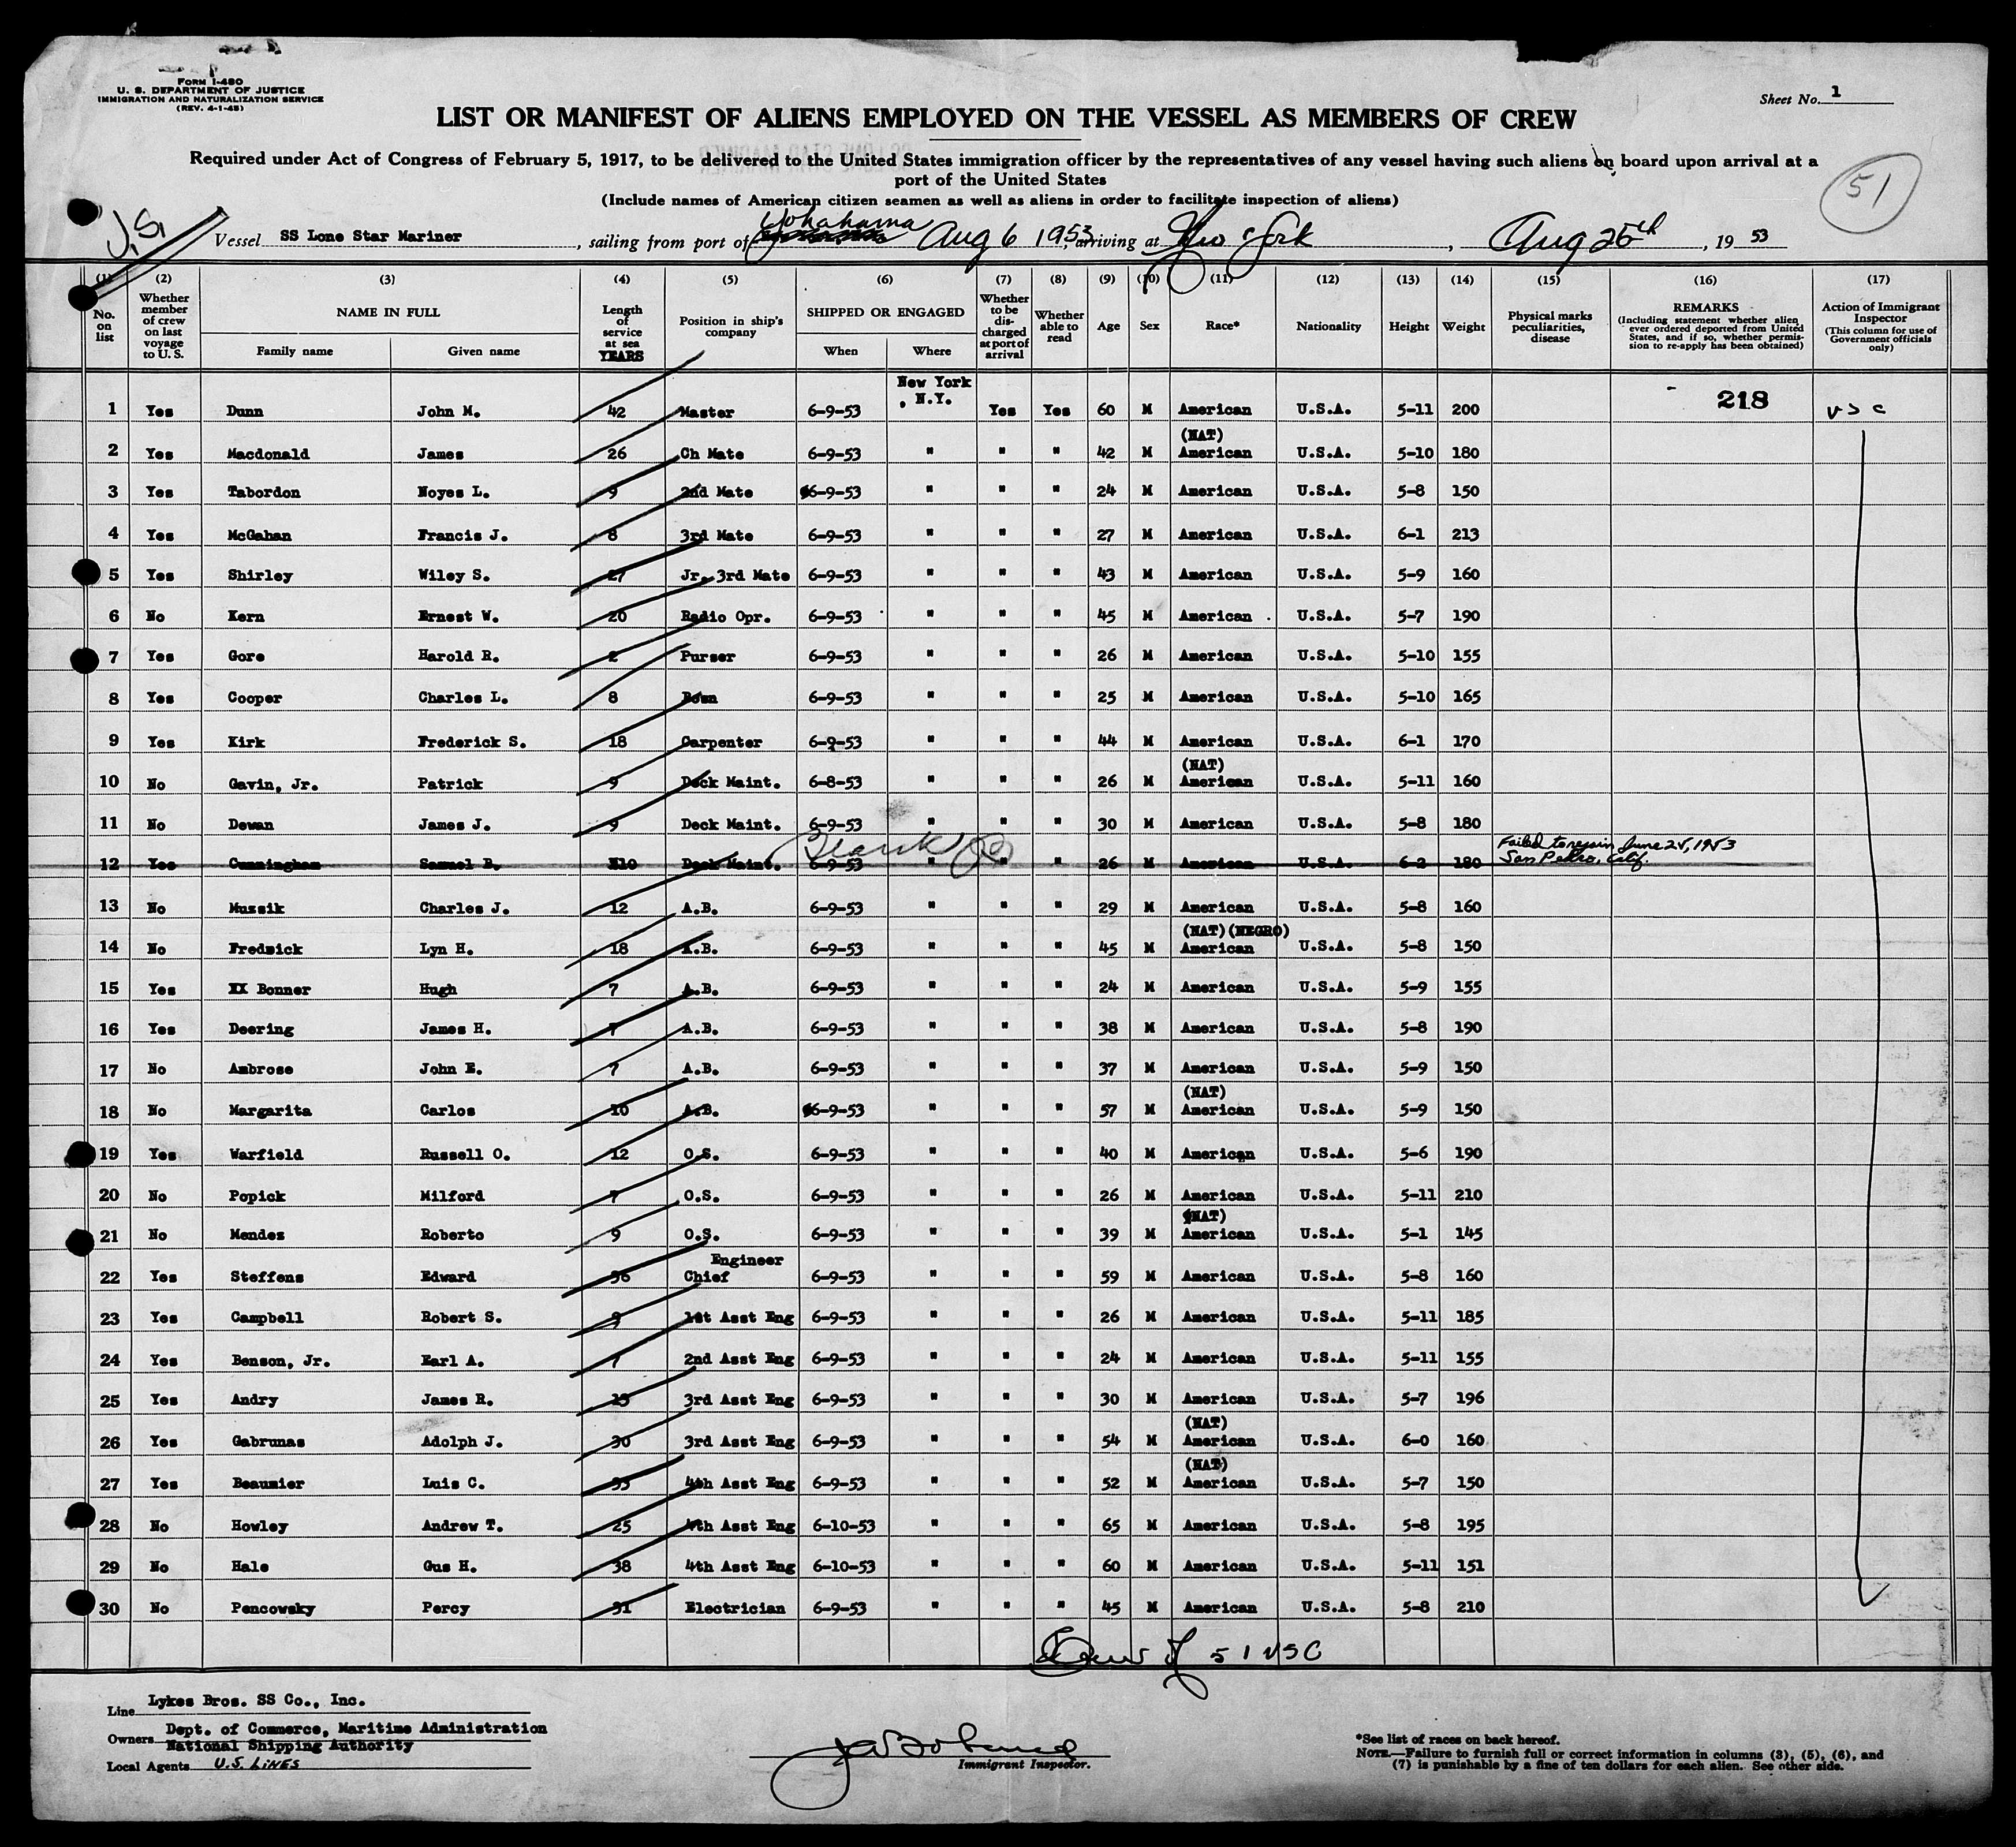 Form I-480
U. S. DEPARTMENT OF JUSTICE
IMMIGRATION AND NATURALIZATION SERVICE
(REV. 4-1-48)
Sheet No. 1
LIST OR MANIFEST OF ALIENS EMPLOYED ON THE VESSEL AS MEMBERS OF CREW
Required under Act of Congress of February 5, 1917, to be delivered to the United States immigration officer by the representatives of any vessel having such aliens on board upon arrival at a
port of the United States
(Include names of American citizen seamen as well as aliens in order to facilitate inspection of aliens)
51
U.S.
Vessel SS Lone Star Mariner, sailing from port of Yokahama Aug 6 1953, arriving at New York, Aug 25th, 19 53
(1) (2) (3) (4) (5) (6) (7) (8) (9) (10) (11) (12) (13) (14) (15) (16) (17)
No. on list
Whether member of crew on last voyage to U. S.
NAME IN FULL
Family name
Given name
Length of service at sea YEARS
Position in ship's company
SHIPPED OR ENGAGED
When
Where
Whether to be discharged at port of arrival
Whether able to read
Age
Sex
Race*
Nationality
Height
Weight
Physical marks peculiarities, disease
REMARKS
(Including statement whether alien ever ordered deported from United States, and if so, whether permission to re-apply has been obtained)
Action of Immigrant Inspector
(This column for use of Government officials only)
1 Yes Dunn John M. 42 Master 6-9-53 New York, N.Y. Yes Yes 60 M American U.S.A. 5-11 200 218 USC
2 Yes Macdonald James 26 Ch Mate 6-9-53 " " " 42 M (NAT) American U.S.A. 5-10 180
3 Yes Tabordon Noyes L. 9 2nd Mate 6-9-53 " " " 24 M American U.S.A. 5-8 150
4 Yes McGahan Francis J. 8 3rd Mate 6-9-53 " " " 27 M American U.S.A. 6-1 213
5 Yes Shirley Wiley S. 27 Jr. 3rd Mate 6-9-53 " " " 43 M American U.S.A. 5-9 160
6 No Kern Ernest W. 20 Radio Opr. 6-9-53 " " " 45 M American U.S.A. 5-7 190
7 Yes Gore Harold R. 2 Purser 6-9-53 " " " 26 M American U.S.A. 5-10 155
8 Yes Cooper Charles L. 8 Bosn 6-9-53 " " " 25 M American U.S.A. 5-10 165
9 Yes Kirk Frederick S. 18 Carpenter 6-9-53 " " " 44 M American U.S.A. 6-1 170
10 No Gavin, Jr. Patrick 9 Deck Maint. 6-8-53 " " " 26 M (NAT) American U.S.A. 5-11 160
11 No Dewan James J. 9 Deck Maint. 6-9-53 " " " 30 M American U.S.A. 5-8 180
12 Yes Cunningham Samuel B. 10 Deck Maint. 6-9-53 " " 26 M American U.S.A. 6-2 180 Failed to rejoin June 25, 1953 San Pedro, Calif.
13 No Mussik Charles J. 12 A.B. 6-9-53 " " " 29 M American U.S.A. 5-8 160
14 No Fredrick Lyn H. 18 A.B. 6-9-53 " " " 45 M (NAT) (NEGRO) American U.S.A. 5-8 150
15 Yes XX Bonner Hugh 7 A.B. 6-9-53 " " " 24 M American U.S.A. 5-9 155
16 Yes Deering James H. 7 A.B. 6-9-53 " " " 38 M American U.S.A. 5-8 190
17 No Ambrose John E. 7 A.B. 6-9-53 " " " 37 M American U.S.A. 5-9 150
18 No Margarita Carlos 10 A.B. 6-9-53 " " " 57 M (NAT) American U.S.A. 5-9 150
19 Yes Warfield Russell O. 12 O.S. 6-9-53 " " " 40 M American U.S.A. 5-6 190
20 No Popick Milford 7 O.S. 6-9-53 " " " 26 M American U.S.A. 5-11 210
21 No Mendez Roberto 9 O.S. 6-9-53 " " " 39 M (NAT) American U.S.A. 5-1 145
22 Yes Steffens Edward 36 Engineer Chief 6-9-53 " " " 59 M American U.S.A. 5-8 160
23 Yes Campbell Robert S. 9 1st Asst Eng 6-9-53 " " " 26 M American U.S.A. 5-11 185
24 Yes Benson, Jr. Earl A. 7 2nd Asst Eng 6-9-53 " " " 24 M American U.S.A. 5-11 155
25 Yes Andry James R. 13 3rd Asst Eng 6-9-53 " " " 30 M American U.S.A. 5-7 196
26 Yes Gabrunas Adolph J. 30 3rd Asst Eng 6-9-53 " " " 54 M (NAT) American U.S.A. 6-0 160
27 Yes Beaumier Luis C. 33 4th Asst Eng 6-9-53 " " " 52 M (NAT) American U.S.A. 5-7 150
28 No Howley Andrew T. 25 4th Asst Eng 6-10-53 " " " 65 M American U.S.A. 5-8 195
29 No Hale Gus H. 38 4th Asst Eng 6-10-53 " " " 60 M American U.S.A. 5-11 151
30 No Pencowsky Percy 31 Electrician 6-9-53 " " " 45 M American U.S.A. 5-8 210
Crew of 51 USC
Line Lykes Bros. SS Co., Inc.
Owners Dept. of Commerce, Maritime Administration
National Shipping Authority
Local Agents U.S. LINES
Immigrant Inspector.
*See list of races on back hereof.
NOTE.—Failure to furnish full or correct information in columns (3), (5), (6), and
(7) is punishable by a fine of ten dollars for each alien. See other side.